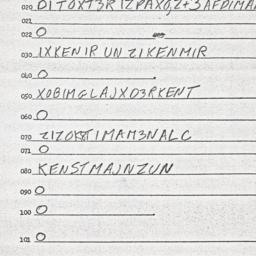 020 DITOXT3RIZPAXO,Z+3AFDIMA
021
022 O
030 IXKENIR UN ZIKENMIR
040 O
050 XOBIMGLAJXO3RKENT
060 O
070 ZIZOKTIMAM3NALC
071 O
080 KENSTMAJNZUN
090 O
100 O
101 O